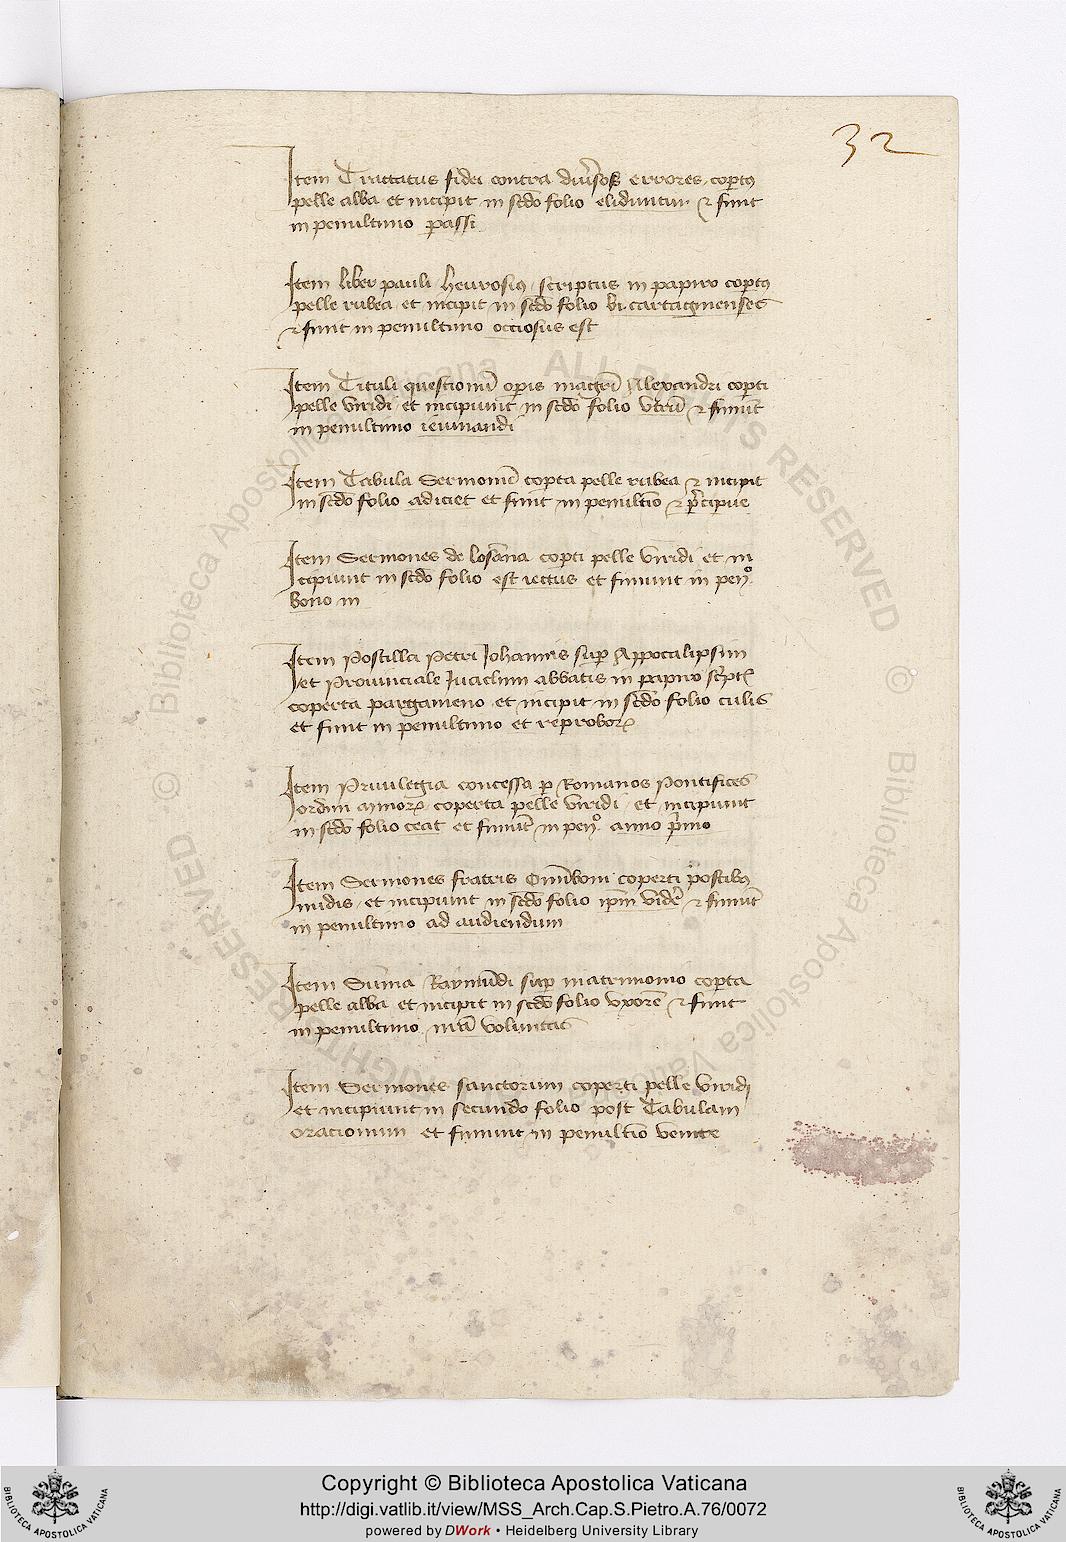 32
Item Tractatus fidei contra diuersos errores copertus
pelle alba et incipit in scdo folio eliduntur et finit
in penultimo passi
Item liber pauli heurosius scriptus in papiro copertus
pelle rubea et incipit in scdo folio bi. cartaginenses
et finit in penultimo occiosus est
Item Tituli questionum operis magri Alexandri coperti
pelle viridi et incipiunt in scdo folio utrum et finiunt
in penultimo ieiunandi
Item Tabula Sermonum coperta pelle rubea et incipit
in scdo folio adiciet et finit in penultio et precipue
Item Sermones de losanna coperti pelle viridi et in
cipiunt in scdo folio est iectus et finiunt in penº
bono in
Item Postilla Petri Johannis super Appocalipsim
et Prouinciale Iuachim abbatis in papiro script
coperta pargameno et incipit in scdo folio culis
et finit in penultimo et reproborum
Item Priuilegia concessa per Romanos Pontifices
ordini minorum coperta pelle viridi et incipiunt
in scdo folio ceat et finiunt in penº anno primo
Item Sermones fratris Omniboni coperti postibus
nudis et incipiunt in scdo folio ipm videre et finiunt
in penultimo ad audiendum
Item Summa Raymundi super matrimonio coperta
pelle alba et incipit in scdo folio uxorem et finit
in penultimo voluntas
Item Sermones sanctorum coperti pelle viridi
et incipiunt in secundo folio post Tabulam
oracionum et finiunt in penultio venite
© Biblioteca Apostolica Vaticana ALL RIGHTS RESERVED
© Biblioteca Apostolica Vaticana ALL RIGHTS RESERVED
Copyright © Biblioteca Apostolica Vaticana
http://digi.vatlib.it/view/MSS_Arch.Cap.S.Pietro.A.76/0072
powered by DWork • Heidelberg University Library
BIBLIOTECA APOSTOLICA VATICANA
BIBLIOTECA APOSTOLICA VATICANA